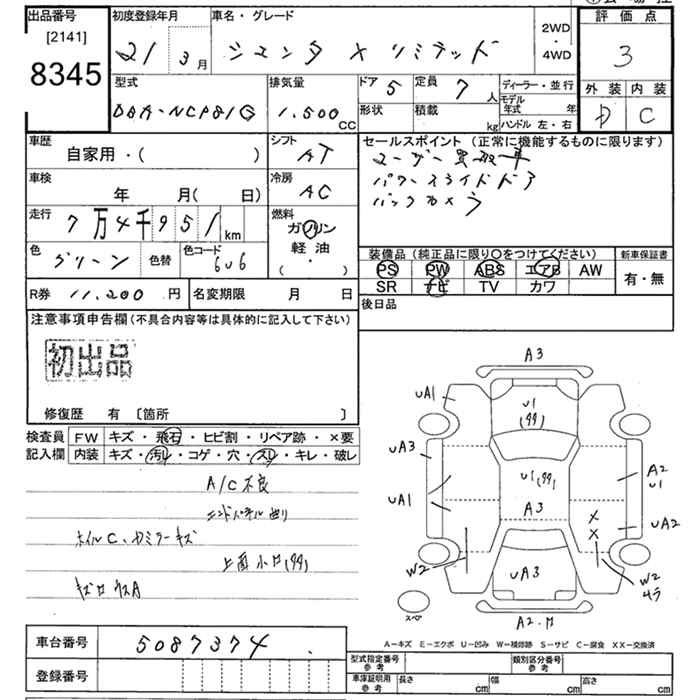 出品番号
[2141]
8345
初度登録年月
21 3月
車名・グレード
シエンタ X リミテッド
2WD
・
4WD
評価点
3
外装 内装
D C
型式
DBA-NCP81G
排気量
1.500 CC
ドア 5
定員 7人
形状
積載 kg
ディーラー・並行
モデル年式 年
ハンドル 左・右
車歴
自家用・( )
シフト
AT
車検
年 月( 日)
冷房
AC
走行
7万4千951km
燃料
ガソリン
軽油
( ・ )
色
グリーン
色替
色コード
6U6
R券 11.200円
名変期限 月 日
セールスポイント (正常に機能するものに限ります)
ユーザー買取車
パワースライドドア
バックカメラ
装備品 (純正品に限り○をつけてください)
PS PW ABS エアB AW
SR ナビ TV カワ
新車保証書
有・無
後日品
注意事項申告欄(不具合内容等は具体的に記入して下さい)
初出品
修復歴 有 〔箇所 〕
検査員
記入欄
FW キズ・飛石・ヒビ割・リペア跡・×要
内装 キズ・汚レ・コゲ・穴・スレ・キレ・破レ
A/C不良
エンドパネル曲り
ホイルC、カミラーキズ
上面小凹(99)
A3
UA1
U1
(99)
UA3
U1(99)
A2
U1
UA1
A3
UA2
X
X
W2
UA3
W2
スペア
A2.
A-キズ E-エクボ U-凹み W-補修跡 S-サビ C-腐食 XX-交換済
車台番号 5087374
登録番号
型式指定番号
参考
類別区分番号
参考
車庫証明用
参考
長さ cm 幅 cm 高さ cm